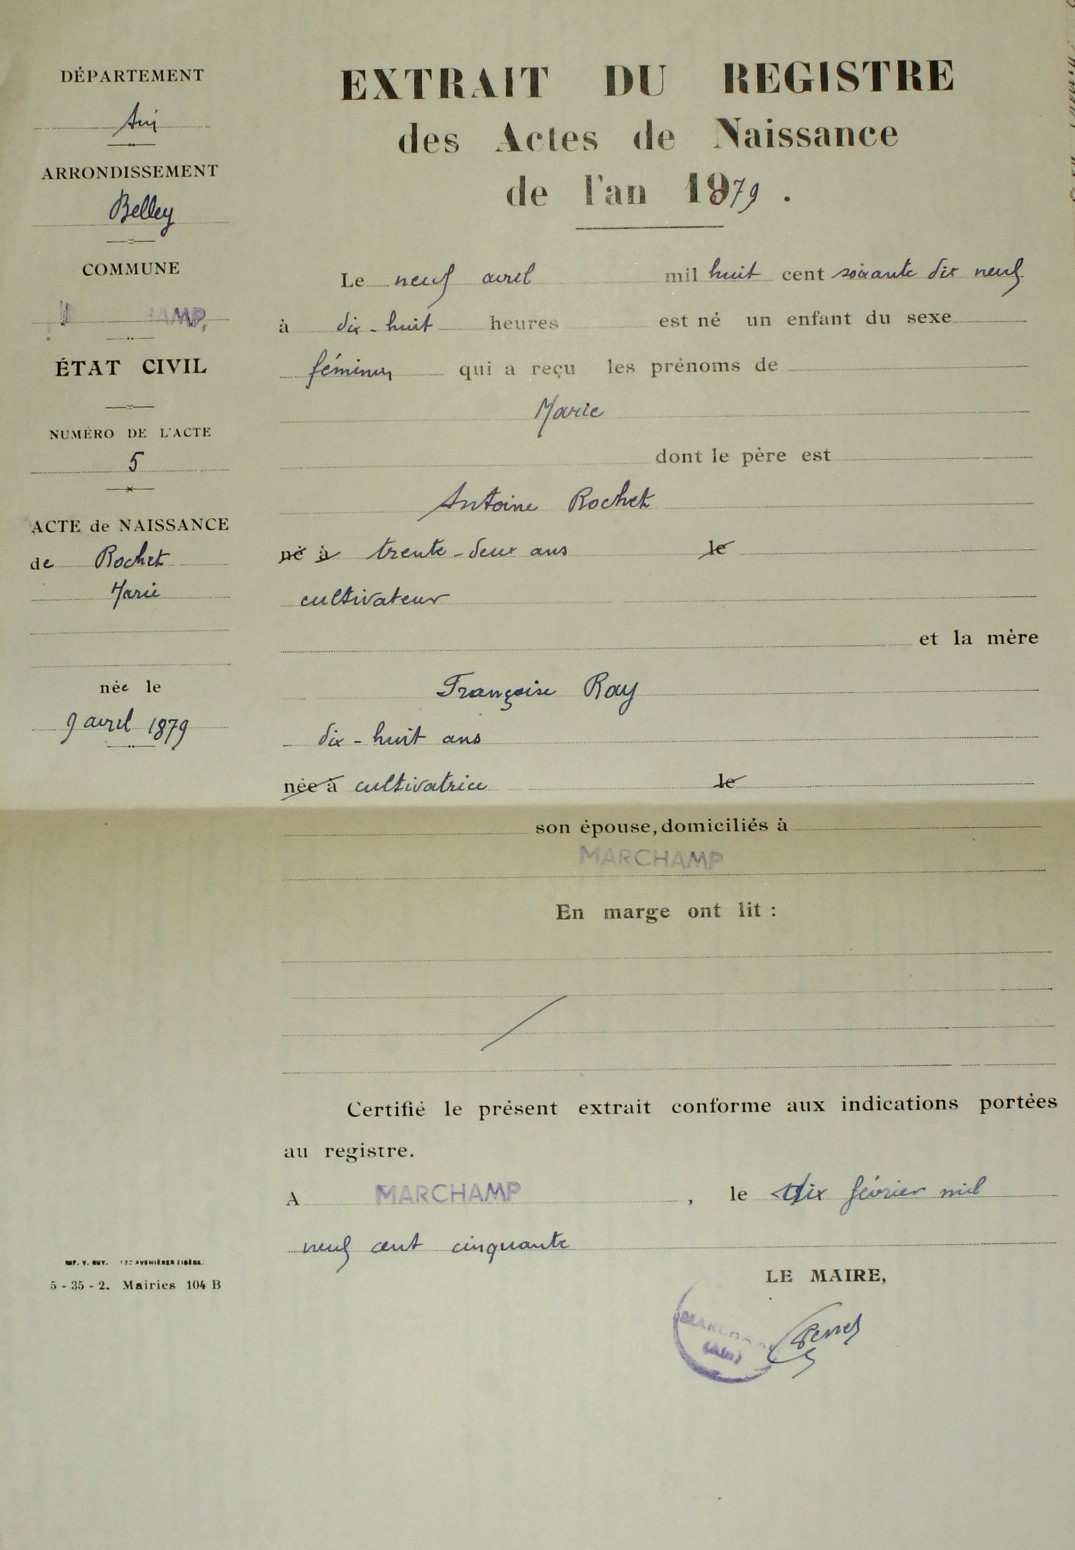 DÉPARTEMENT
Ain
ARRONDISSEMENT
Belley
COMMUNE
ÉTAT CIVIL
NUMÉRO DE L'ACTE
5
ACTE de NAISSANCE
de Rochet
Marie
née le
9 avril 1879
5 - 35 - 2. Mairies 104 B
EXTRAIT DU REGISTRE
des Actes de Naissance
de l'an 1879.
Le neuf avril mil huit cent soixante dix neuf
à dix-huit heures est né un enfant du sexe
féminin qui a reçu les prénoms de
Marie
dont le père est
Antoine Rochet
né à trente-deux ans le
cultivateur
et la mère
Françoise Ray
dix-huit ans
née à cultivatrice le
son épouse, domiciliés à
MARCHAMP
En marge ont lit :
Certifié le présent extrait conforme aux indications portées
au registre.
A MARCHAMP, le dix février mil
neuf cent cinquante
LE MAIRE,
MARCHAMP
(Ain)